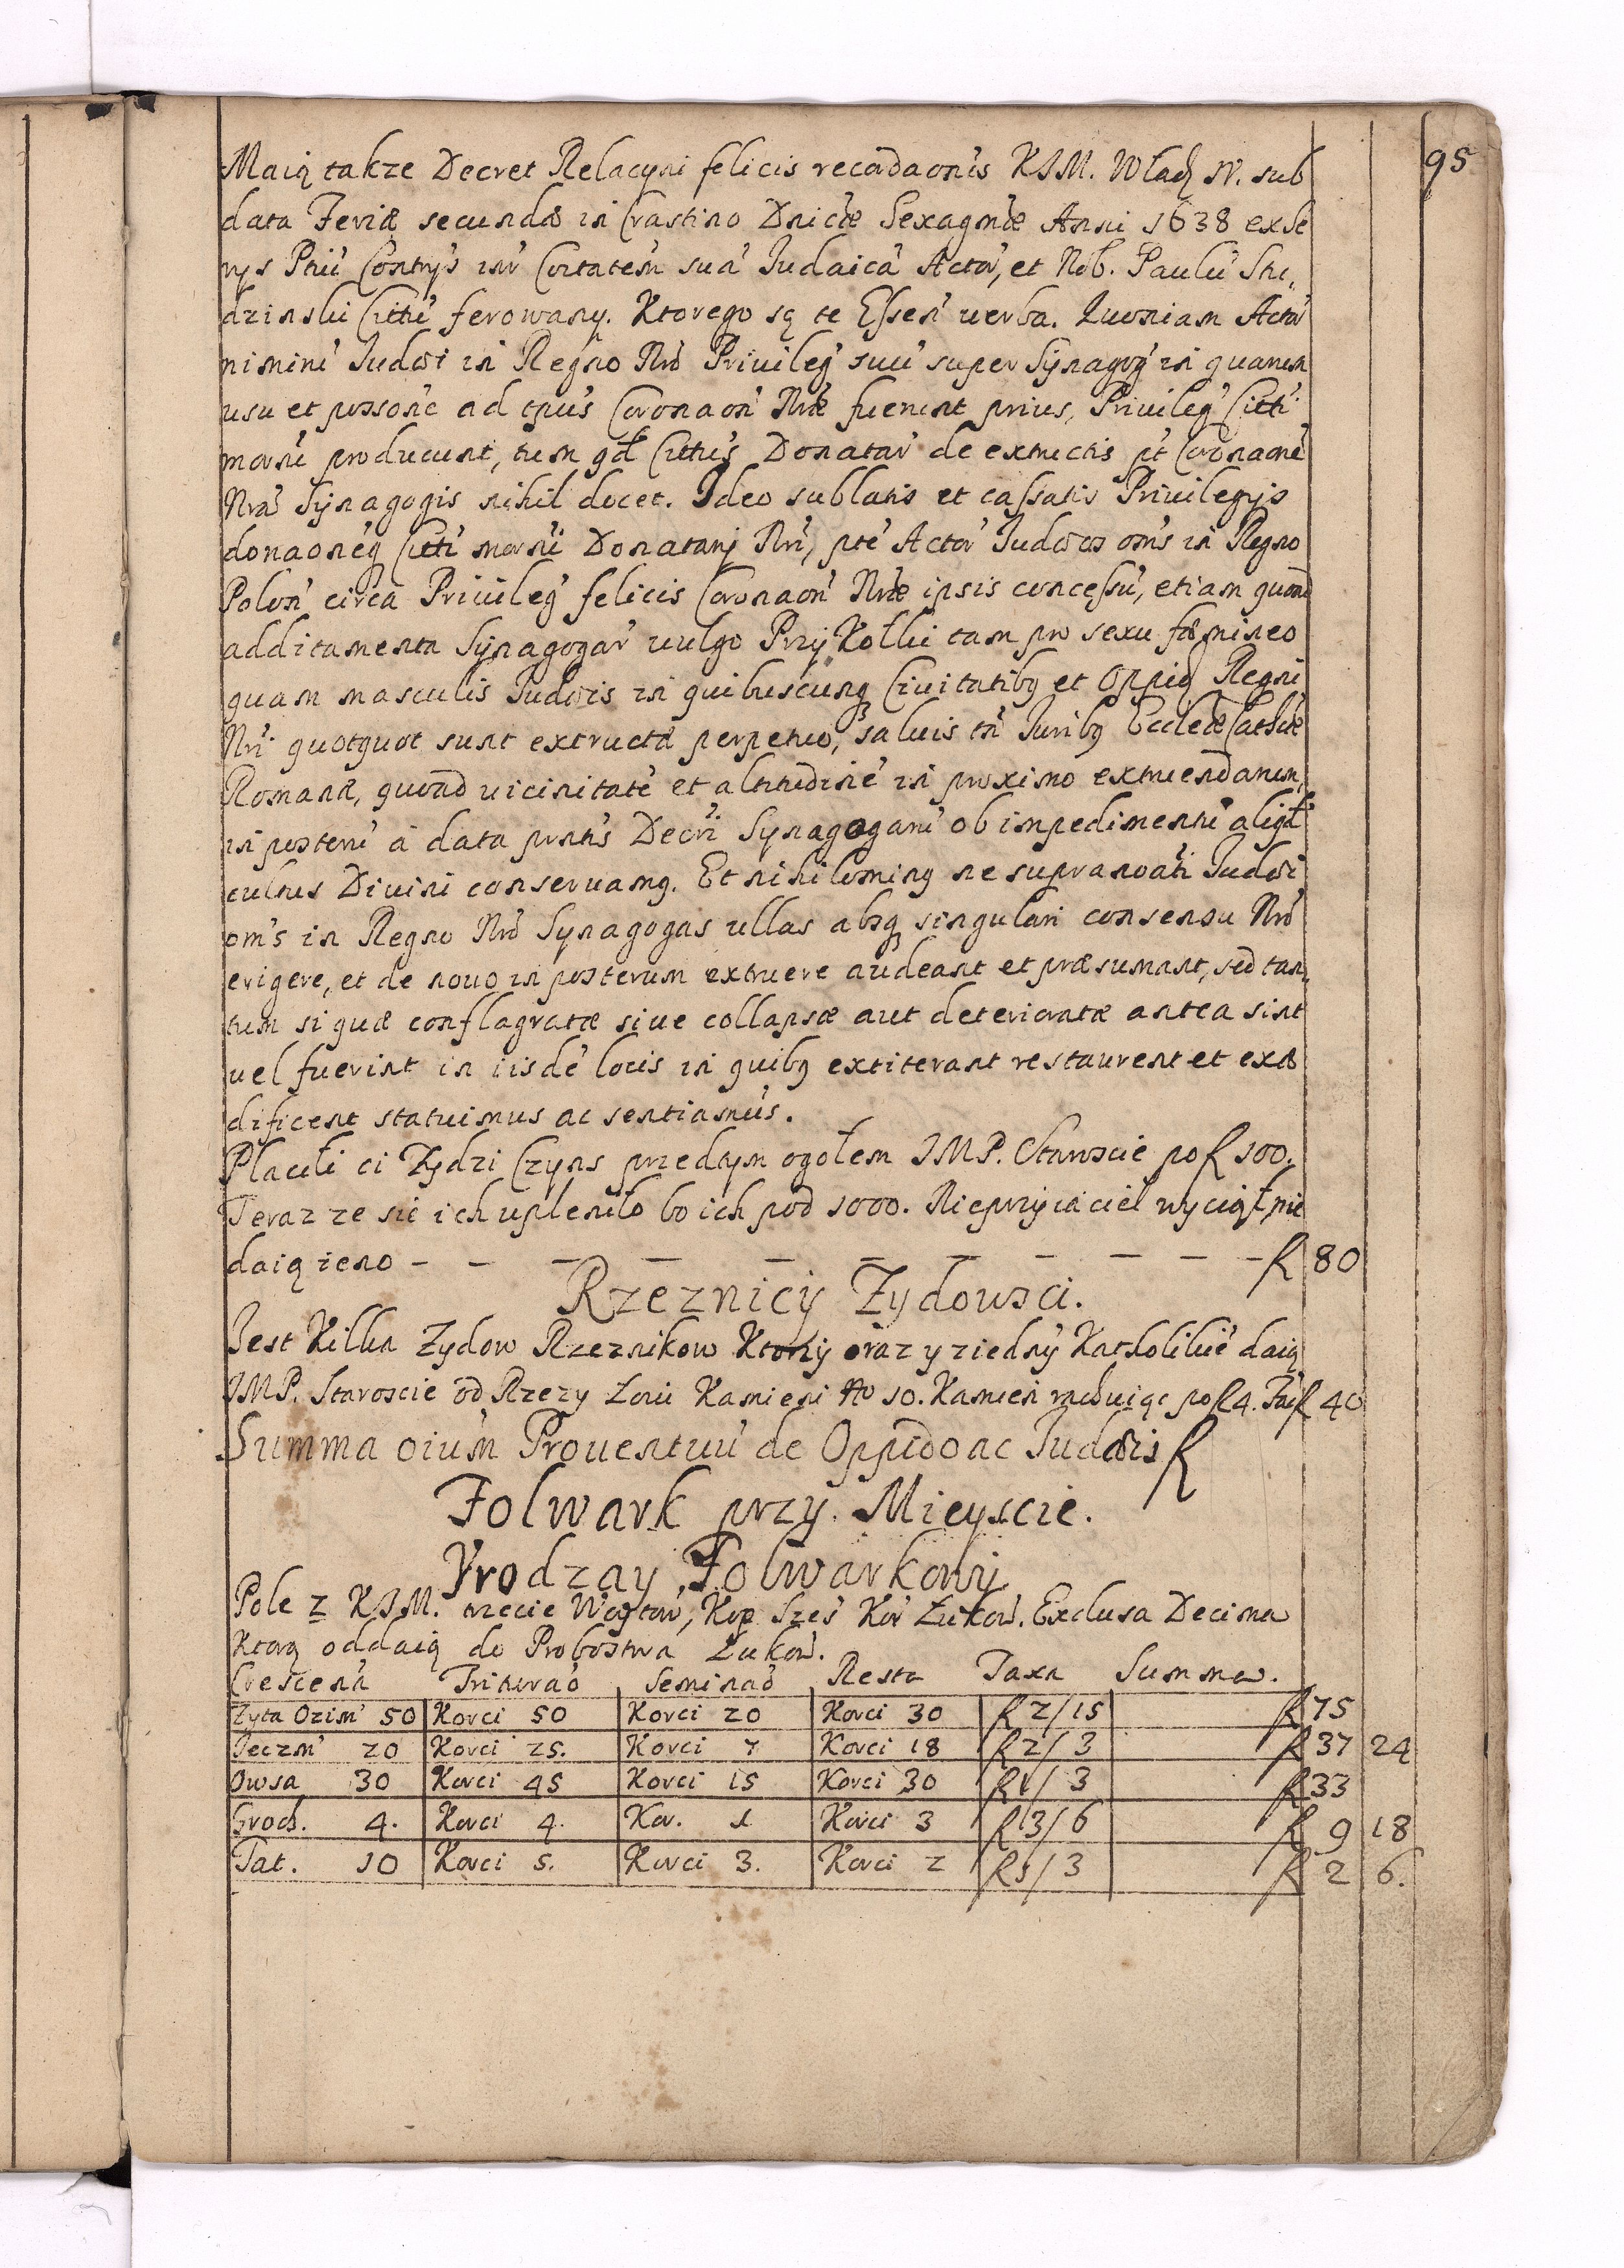 95
Maią takze Decret Relacyni felicis recōdaonis KJM. Wład IV. sub
data Feriæ secundæ in Crastino Dnicæ Sexagmæ Anni 1638 exse
rys Ptiu Contrys inr Coitatem suā Judaicā Actor, et Nob. Paulū Stu„
dzinski Cittū ferowany. Ktorego są te Essen verba. Quoniam Actor
nimirū Judæi in Regno Nrō Privileg suū super Synagog in quarum
usu et possone ad tpus Coronaon Nræ fuerint prius, Privileg Citti
morni producunt, tum qd Cittus Donatar de extructis pt Coronaone
Nrā Synagogis nihil docet. Ideo sublatis et cassatis Privilegijs
donaoneq Citti mornī Donatarij Nri, pte Actor Judæos oms in Regno
Polon circa Privileg felicis Coronaon Nræ ipsis concessū, etiam quoad
additamenta Synagogar vulgo Przy Kotki tam pro sexu fæmineo
quam masculis Judæis in quibuscunq Civitatibq et Oppid Regni
Nri quotquot sunt extructa perpetuo, salvis tn Juribq Eccleæ Cathcæ
Romanæ, quoad vicinitate et altitudine in proximo extruendarum
in posterū à data prntis Decrī Synagogarū ob impedimentū aliqd
cultus Divini conservamq. Et nihilominq ne supranoati Judæi
oms in Regno Nrō Synagogas ullas absq singulari consensu Nrō
erigere, et de novo in posterum extruere audeant et præsumant, sed tan„
tum si quæ conflagratæ sive collapsæ aut deterioratæ antea sint
vel fuerint in iisde locis in quibq extiterant restaurent et exæ
dificent statuimus ac sentiamus.
Płacili ci Zydzi Czyns przedtym ogołem JMP. Staroscie po fl 100.
Teraz ze sie ich uplenilo bo ich pod 1000. Nieprzyiaciel wyciął, nie
daią ieno - - - - - - - - - - - - fl 80
Rzeznicy Zydowsci.
Jest Kilka Zydow Rzeznikow Ktorzy oraz y ziedny Katholikiē daią
JMP. Staroscie od Rzezy Łoiu Kamieni No 10. Kamien rachuiąc po fl 4. Fac fl 40
Summa oium Proventuū de Oppido ac Judæis fl
Folwark przy Mieyscie.
Vrodzay Folwarkowy.
Pole z KJM. trzecie Woytow, Kop Szes Kor Łukow. Exclusa Decima
Ktorą oddaią do Probostwa Łukow.
Crescen Triturao Seminao Resta Taxa Summa.
Zyta Ozim 50 Korci 50 Korci 20 Korci 30 fl 2/15 fl 75
Jeczm 20 Korci 25. Korci 7 Korci 18 fl 2/3 fl 37 24
Owsa 30 Korci 45 Korci 15 Korci 30 fl 1/3 fl 33
Groch. 4. Korci 4. Kor. 1 Korci 3 fl 3/6 fl 9 18
Tat. 10 Korci 5. Korci 3. Korci 2 fl 1/3 fl 2 6.